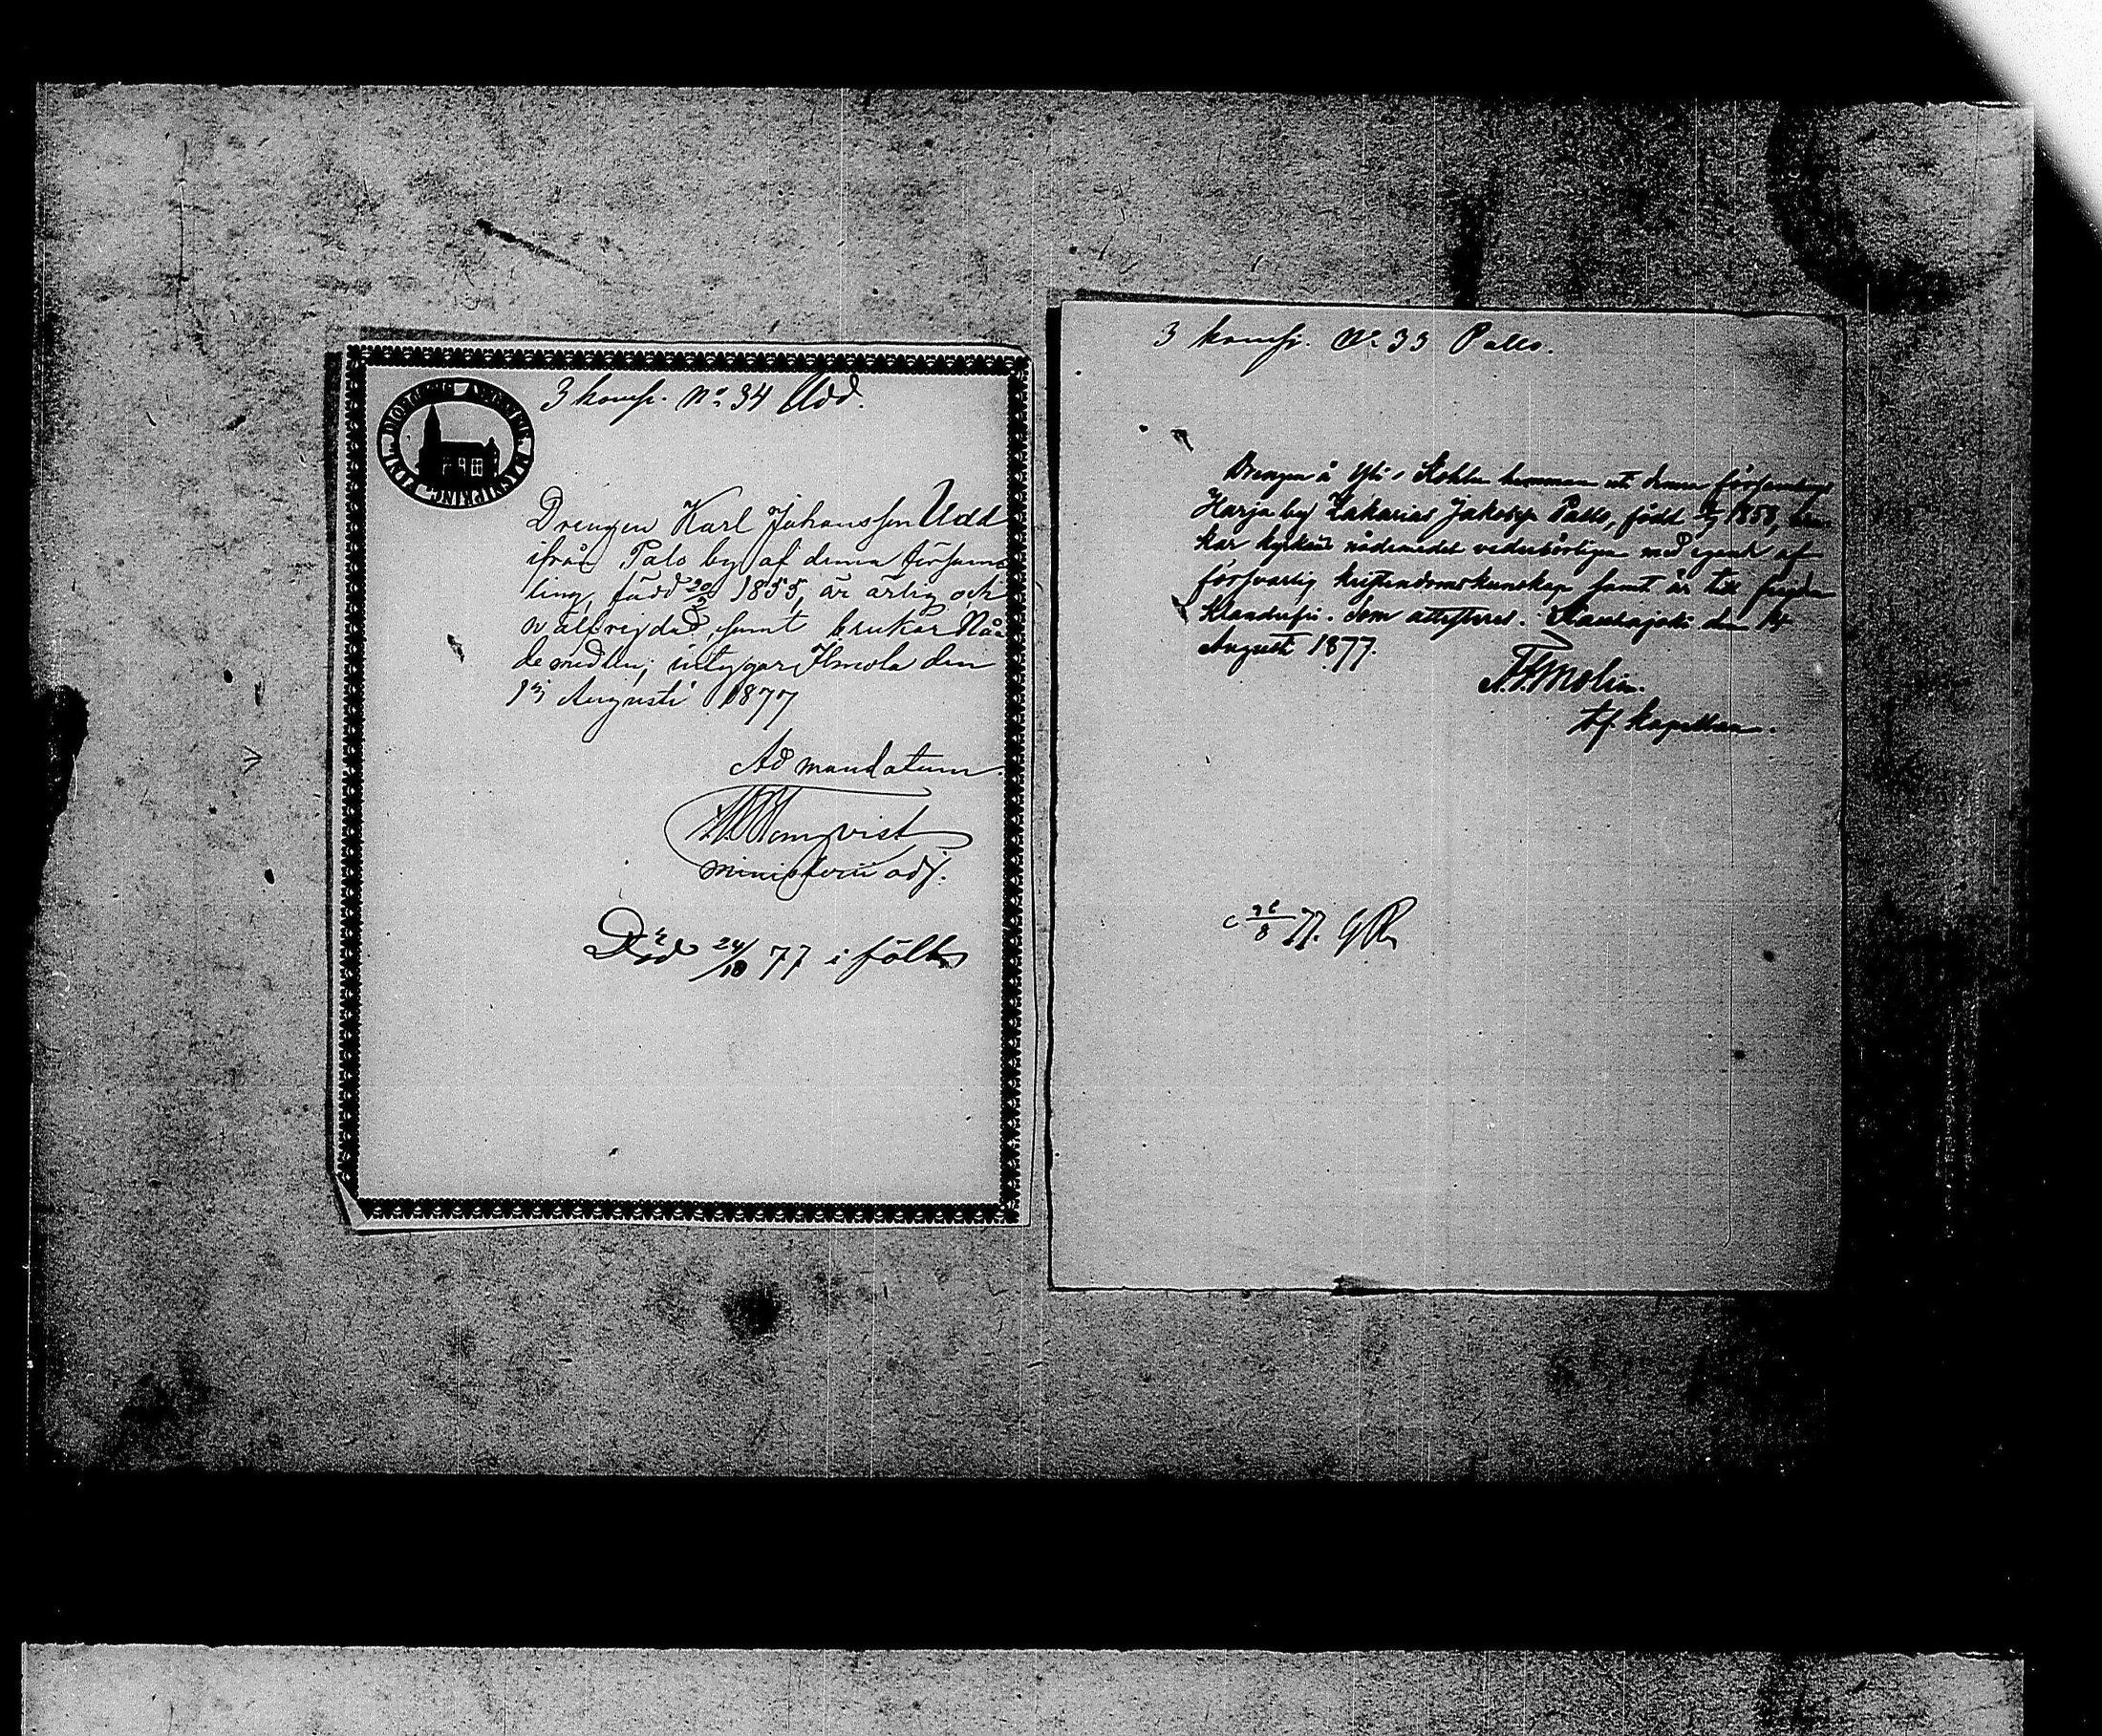 3 komp. No 34 Udd.
Drengen Karl Johansson Udd
ifrån Palo by af denna försams
ling, född 20/2 1855, är ärlig och
välfrejdad, samt brukar Nå-
demedlen; intygar Ilmola den
13 Augusti 1877
Ad mandatum.
ministerii adj.
Död 24/10 77 i fält
3 komp. No 33 Pallo.
Drengen å Yli Kohla hemman ut denna församlings
Harja by Zakarias Jakobss. Pallo, född 1858,
kar nådemedel vederbörligen med egande af
försvarlig kristendomskunskap samt är till frejden
Klanderfri. Som attesteras. Kauhajoki den 14
Augusti 1877.
Molin.
tf. kapellan.
c 26/8 77.